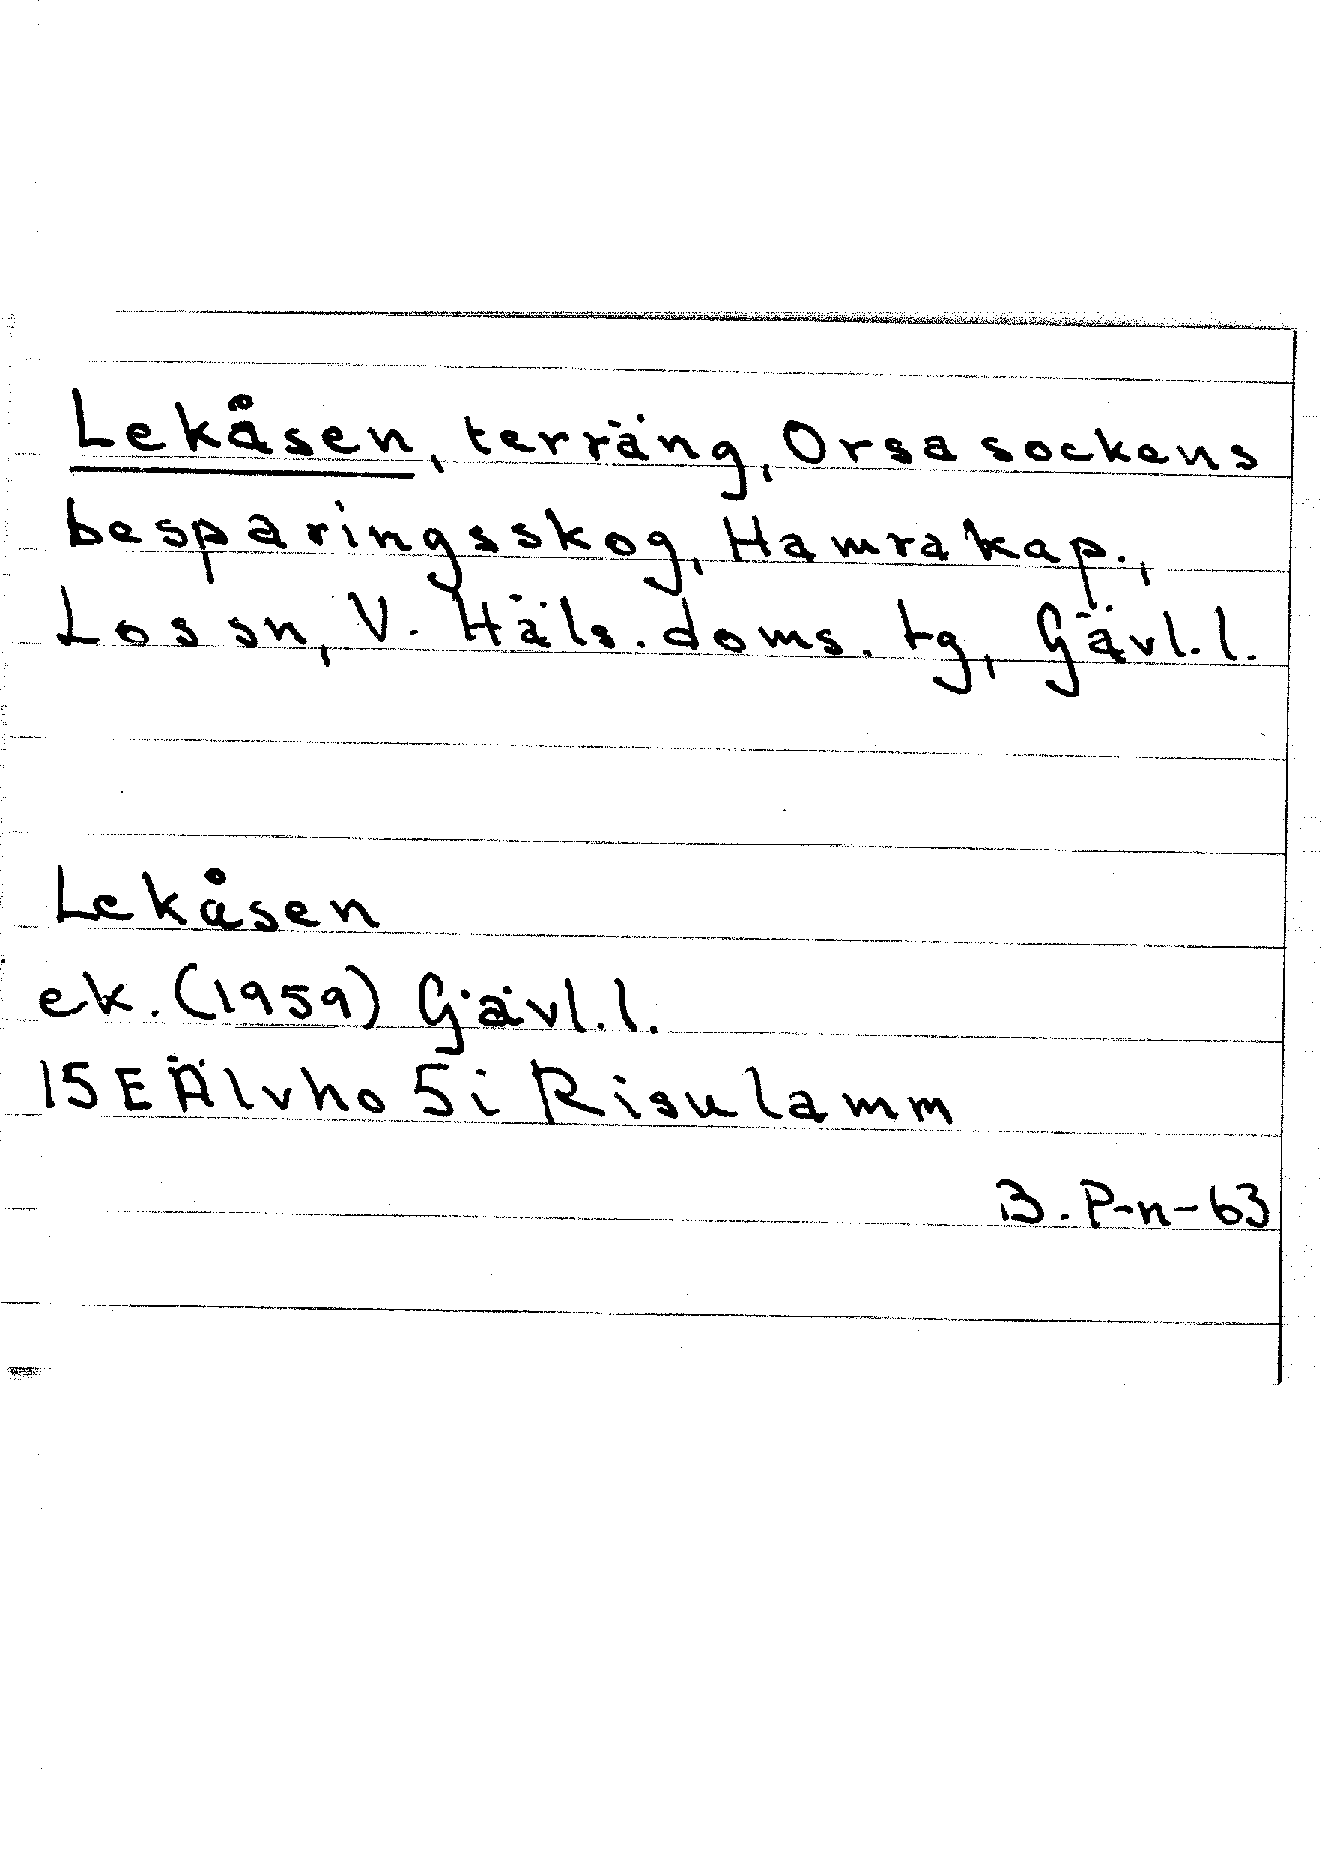 Lekåsen, terräng, Orsa sockens
besparingsskog, Hamra kap.,
Los sn, V. Häls. doms. tg, Gävl. l.
Lekåsen
ek. (1959) Gävl. l.
15E Älvho 5i Risulamm
B. P-n-63